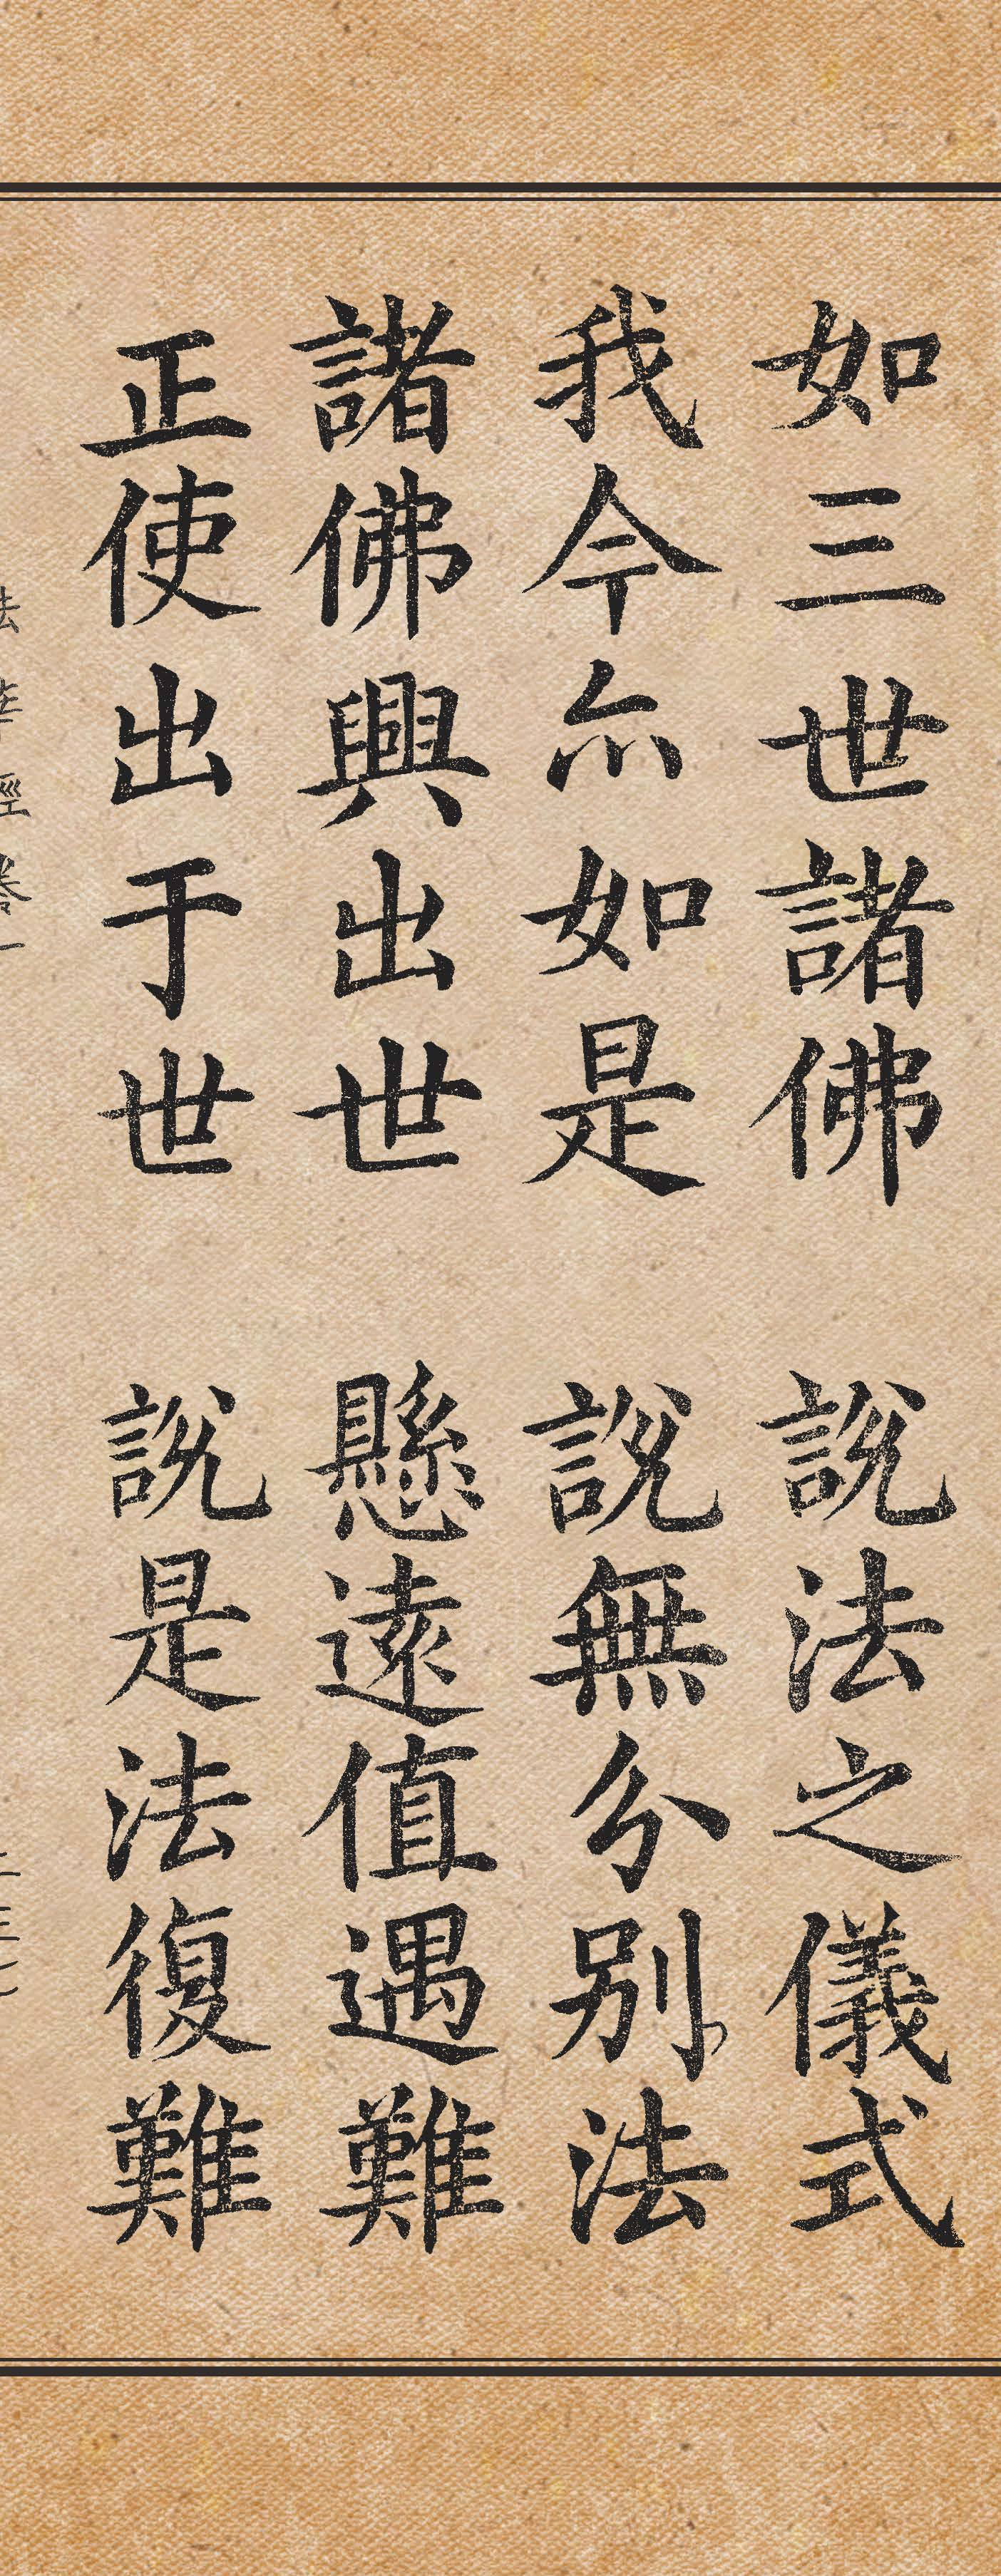 如三世諸佛 說法之儀式
我今尒如是 說無分别法
諸佛興出世 懸遠值遇難
正使出于世 說是法復難
法華經卷一